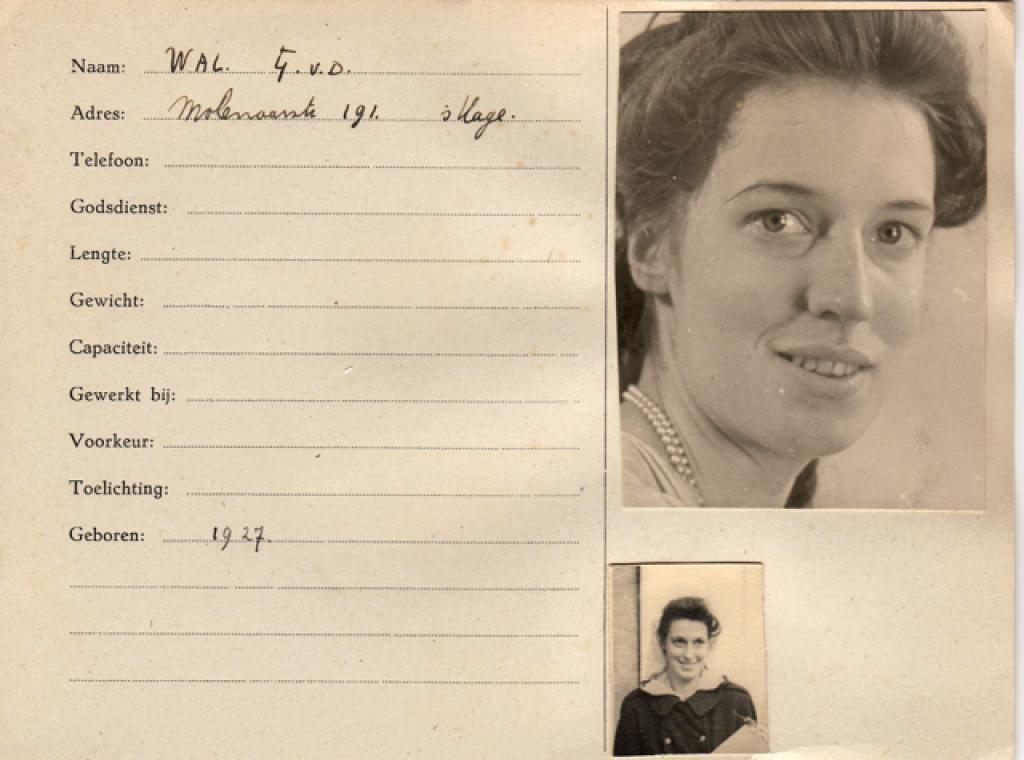 Naam: WAL. G. v. D.
Adres: Molenaarstr 191. 's Hage.
Telefoon:
Godsdienst:
Lengte:
Gewicht:
Capaciteit:
Gewerkt bij:
Voorkeur:
Toelichting:
Geboren: 1927.